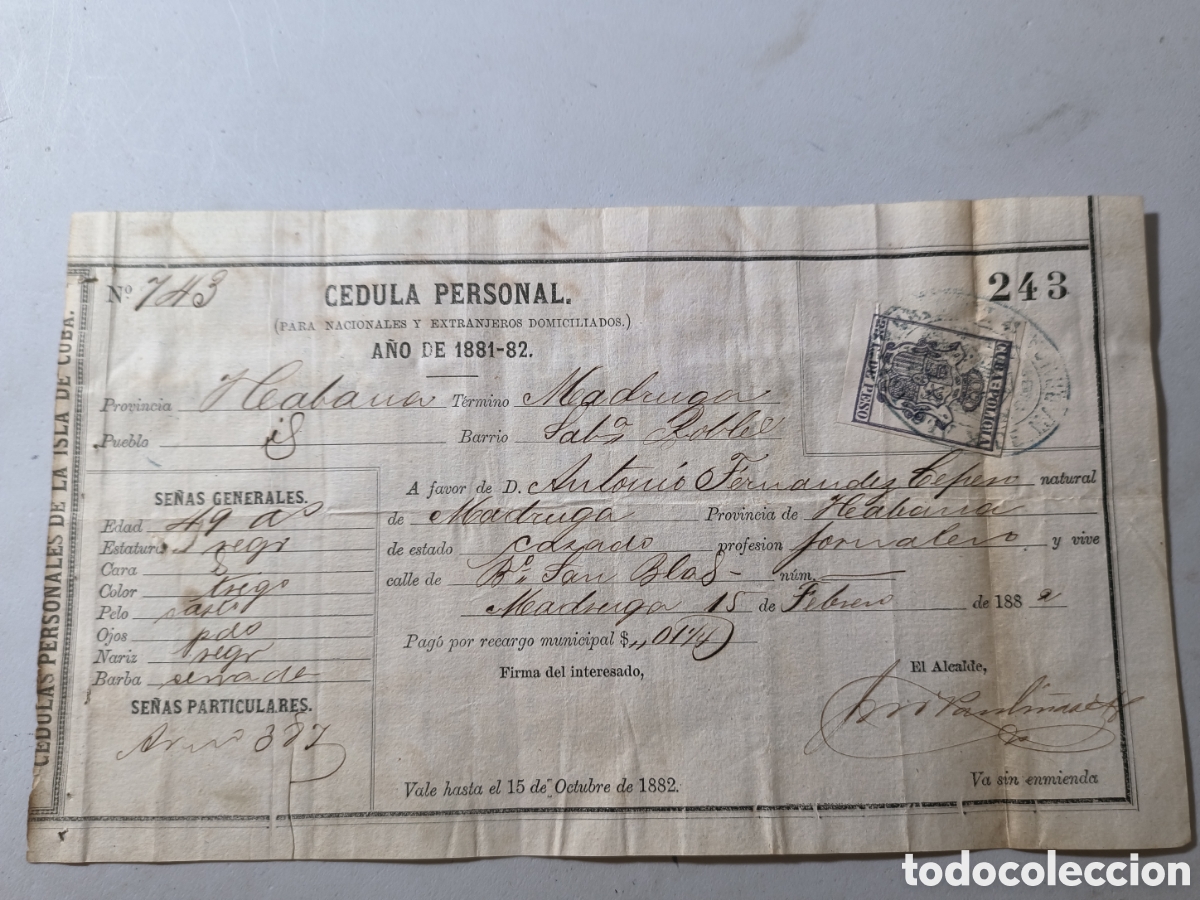 CEDULAS PERSONALES DE LA ISLA DE CUBA.
Nº 743
243
CEDULA PERSONAL.
(PARA NACIONALES Y EXTRANJEROS DOMICILIADOS.)
AÑO DE 1881-82.
Provincia Habana Término Madruga
Pueblo id Barrio Sabª Robles
CUBA POLICIA
DE PESO
SEÑAS GENERALES.
Edad 49 aº
Estatura regr
Cara
Color trigº
Pelo
Ojos pdº
Nariz regr
Barba
SEÑAS PARTICULARES.
387
A favor de D. Antonio Fernandez Cepero natural
de Madruga Provincia de Habana
de estado cazado profesion jornalero y vive
calle de Bº San Blas núm.
Madruga 15 de Febrero de 1882
Pagó por recargo municipal $
Firma del interesado,
El Alcalde,
Vale hasta el 15 de Octubre de 1882.
Va sin enmienda
todocoleccion